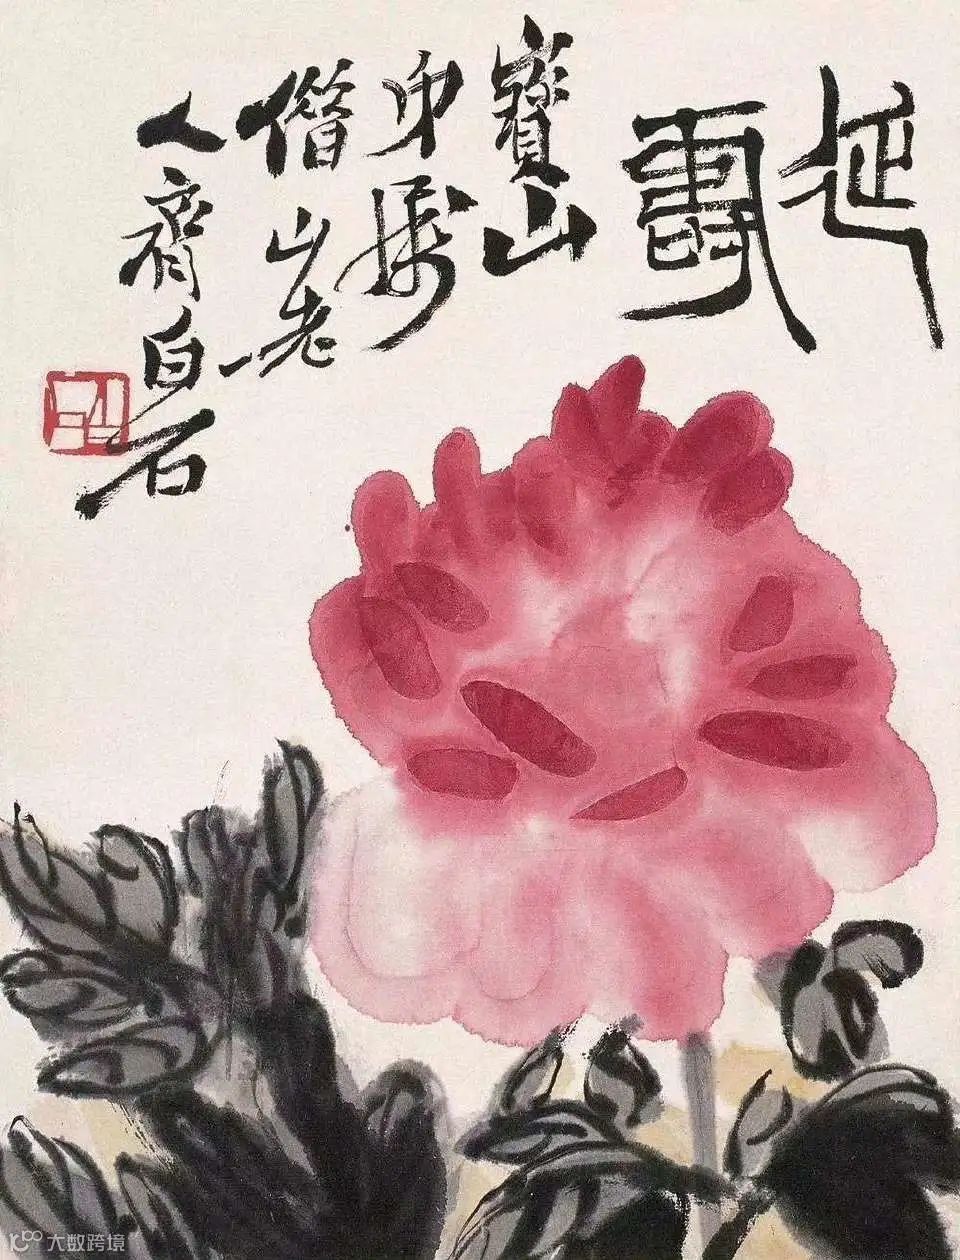 延壽
寶山
屬
借山老
人齊白石
大数跨境